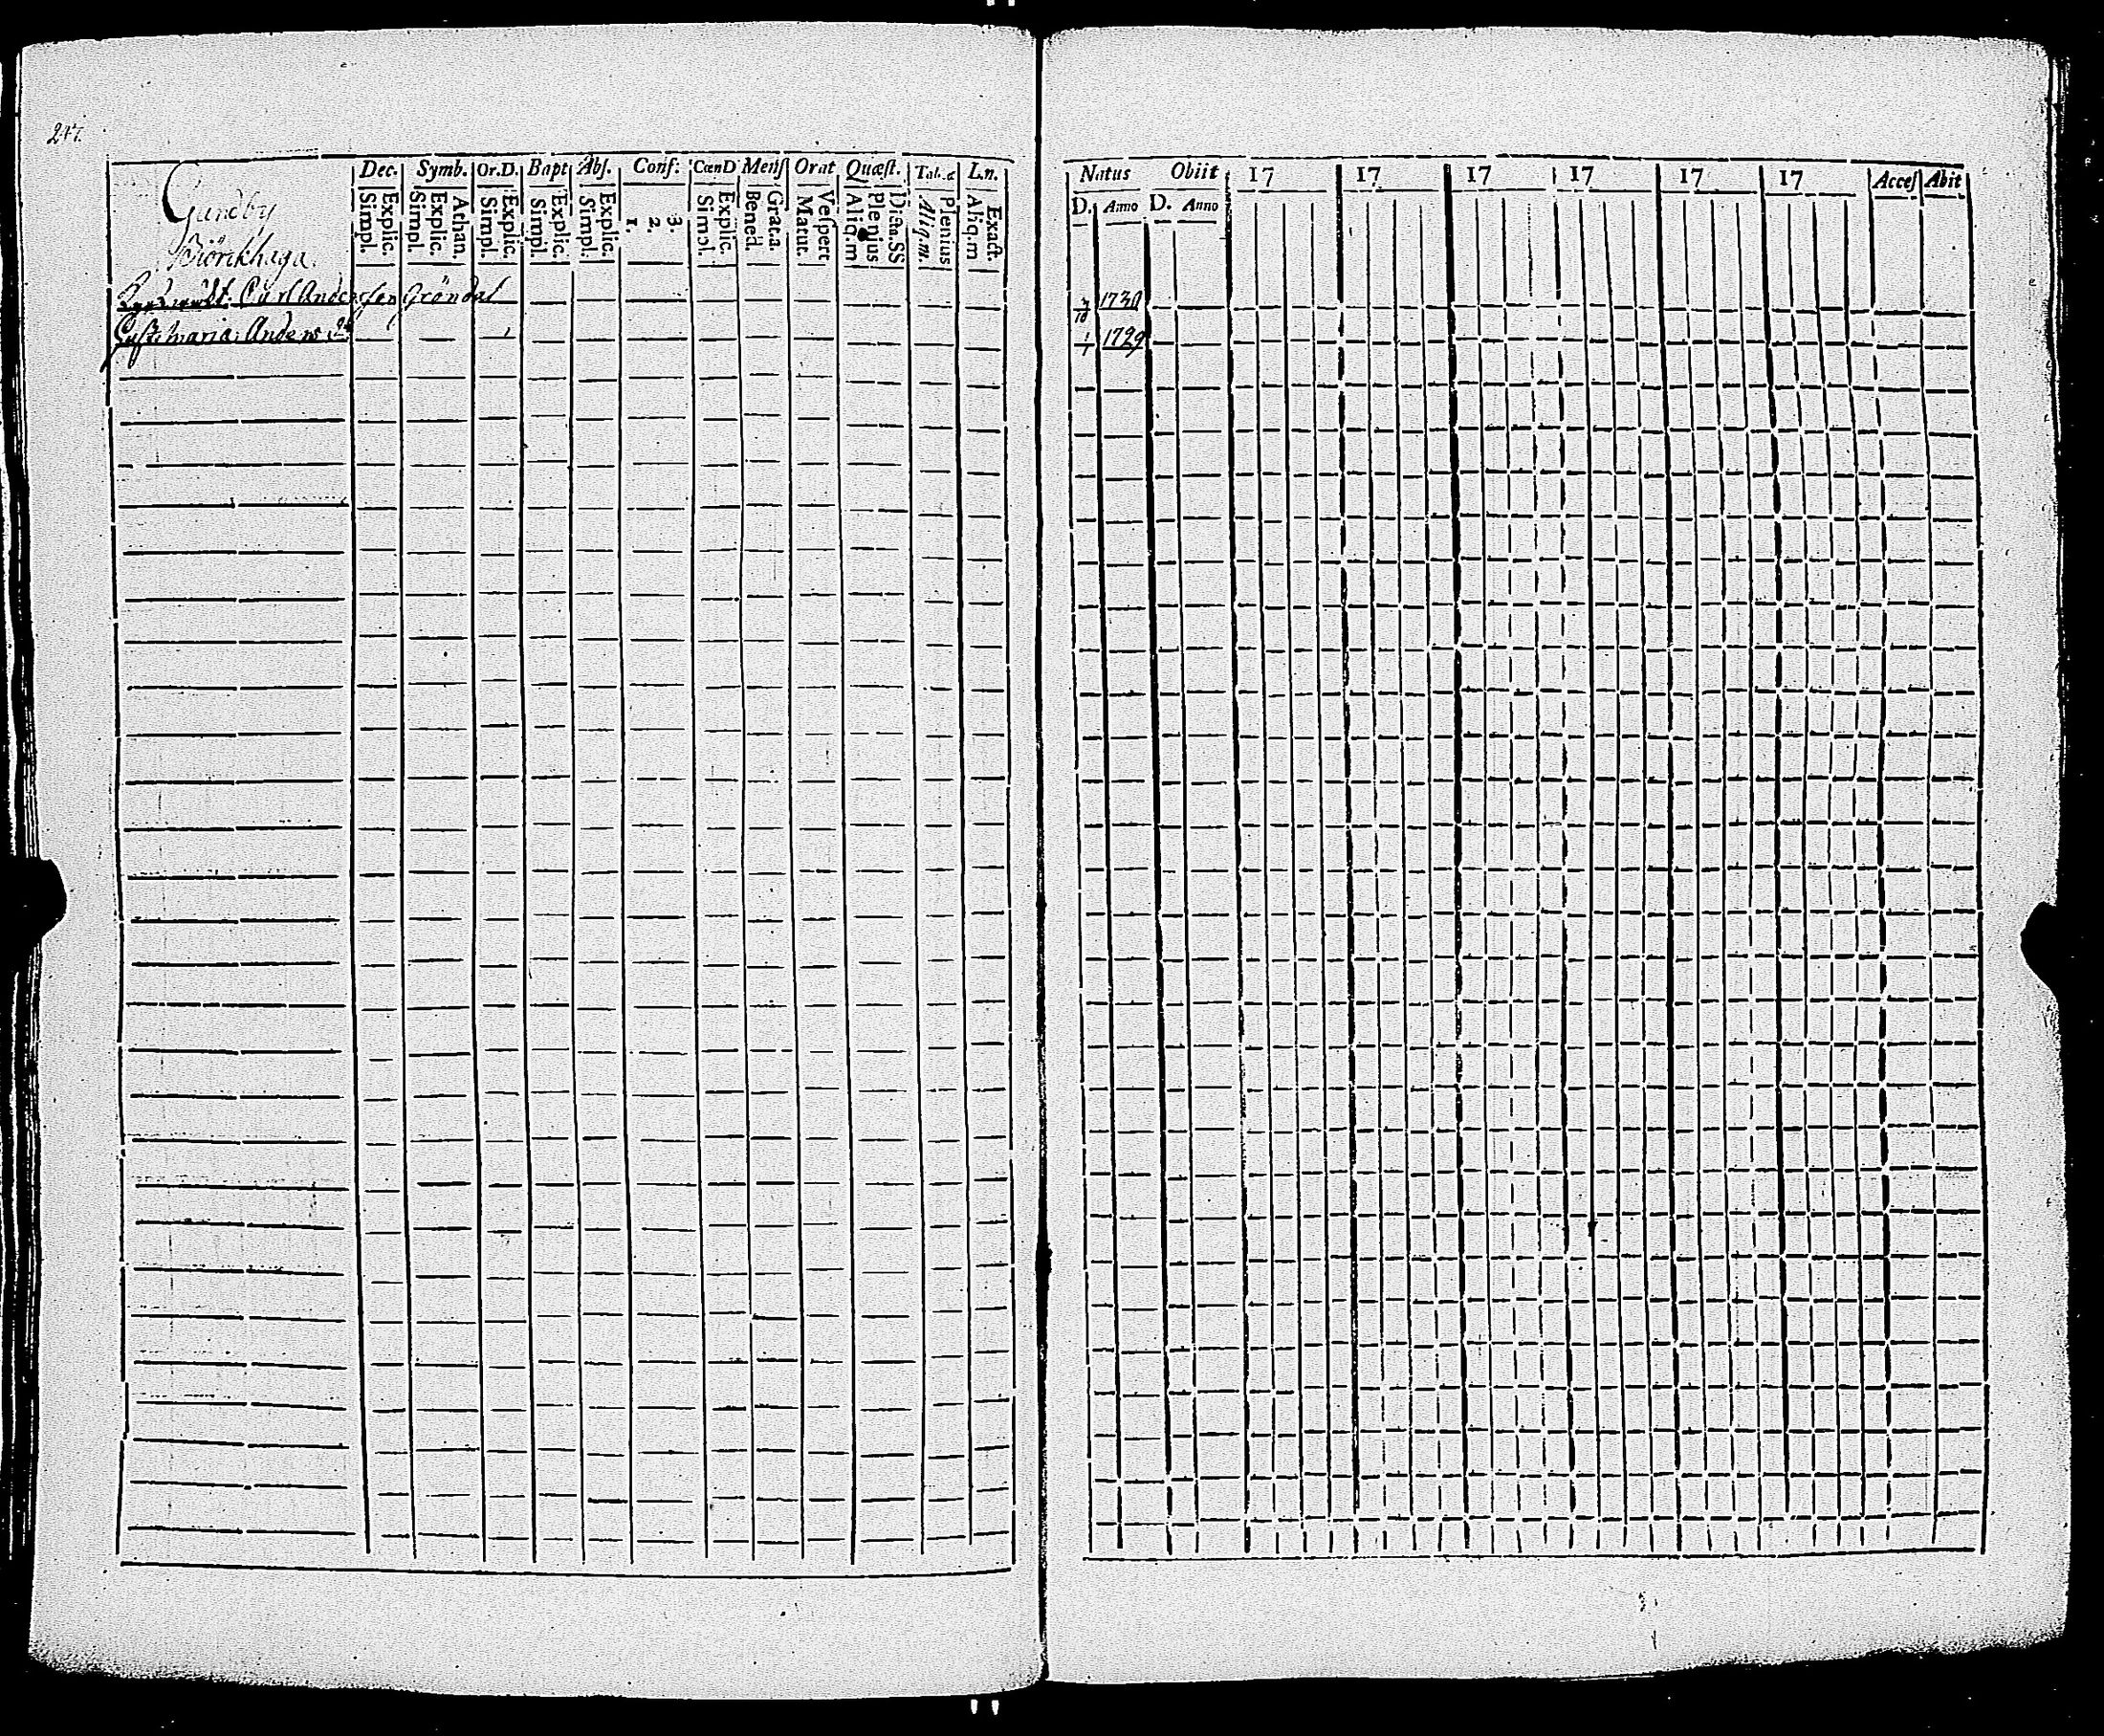 247.
Dec. Symb. Or.D. Bapt Abſ. Conf: CœnD Menſ Orat Quæſt. L.n.
Explic. Simpl. Athan. Explic. Simpl. Explic. Simpl. Explic. Simpl. Explic. Simpl. 3. 2. 1. Explic. Simpl. Grat.a. Bened. Veſpert Matut. Dicta.SS Plenius Aliq.m Plenius Aliq.m. Exact. Aliq.m
Gundby
Biörkhaga.
Carl Andersson Gröndal
maria Anders
Natus Obiit 17 17 17 17 17 17 Acceſ Abit
D. Anno D. Anno
1730
1 1729